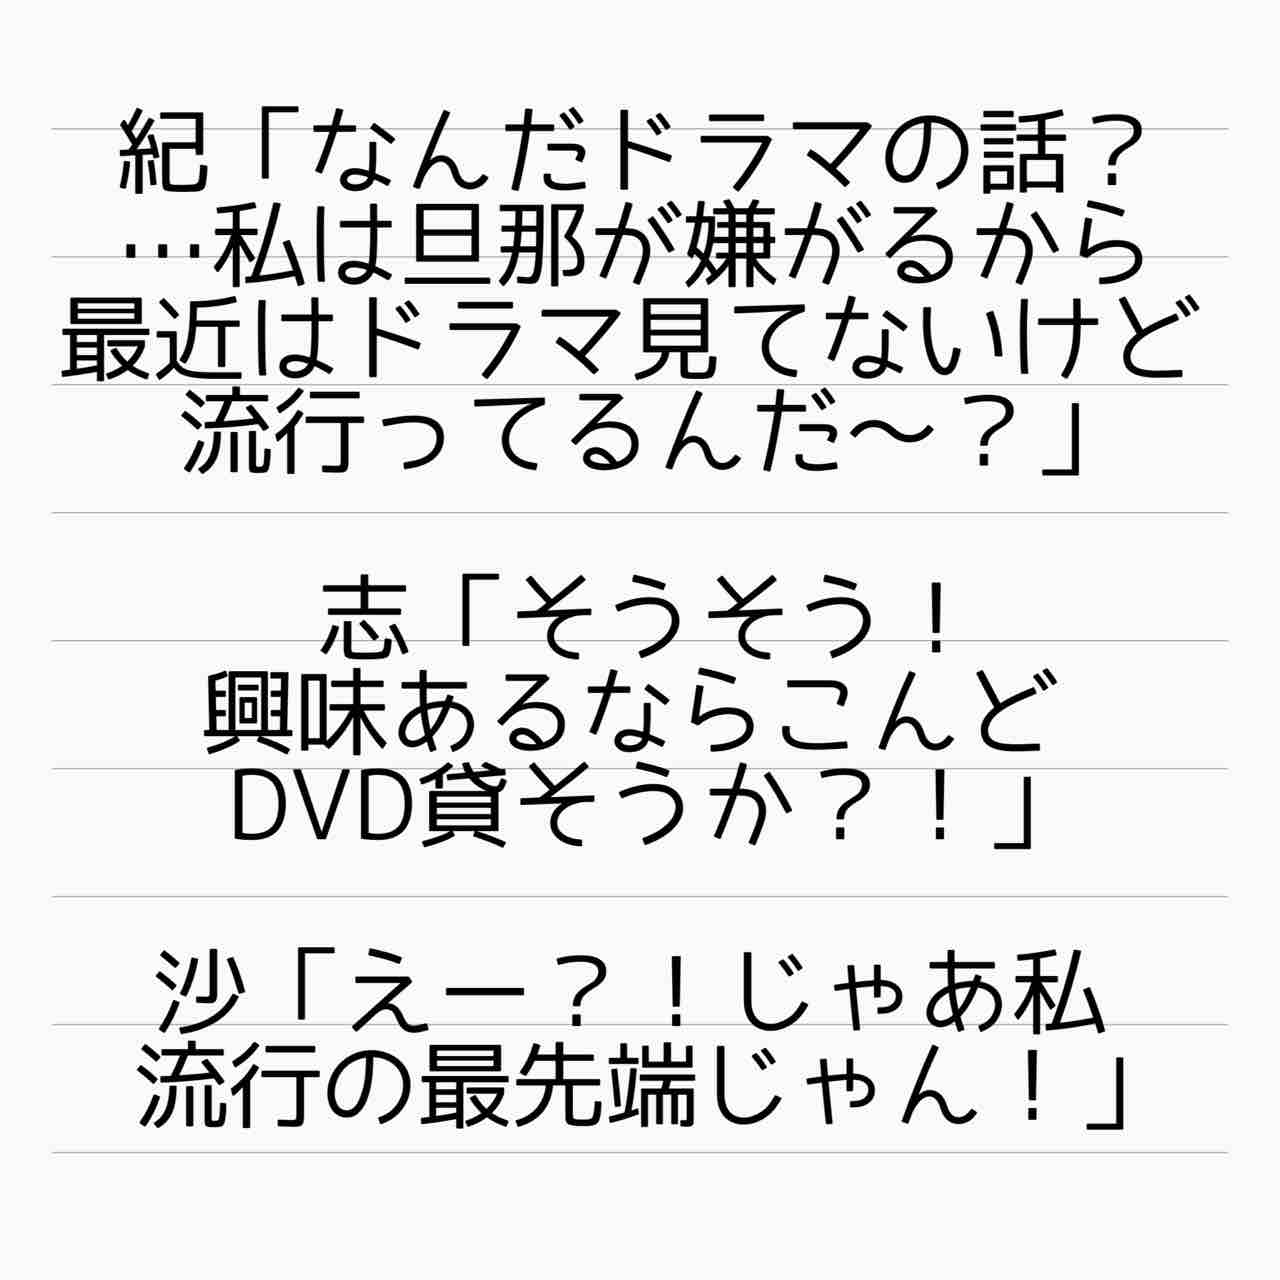 紀「なんだドラマの話？
…私は旦那が嫌がるから
最近はドラマ見てないけど
流行ってるんだ〜？」
志「そうそう！
興味あるならこんど
DVD貸そうか？！」
沙「えー？！じゃあ私
流行の最先端じゃん！」